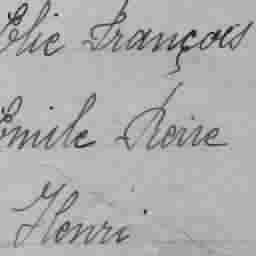 Elie François
Emile Pierre
Henri